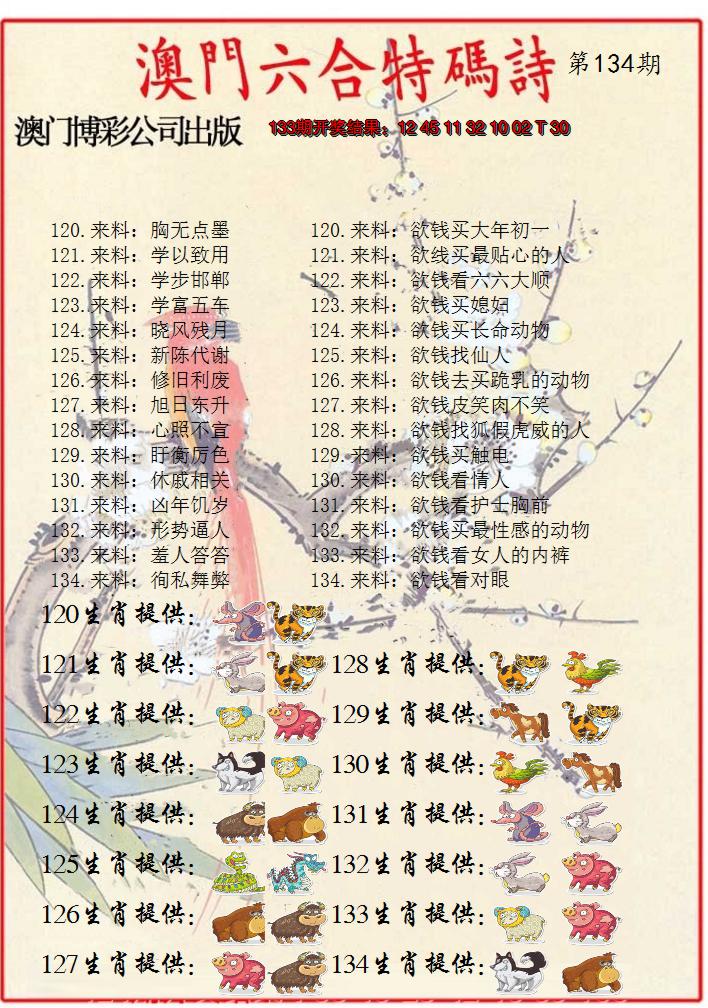 澳門六合特碼詩
第134期
澳门博彩公司出版
133期开奖结果：12 45 11 32 10 02 T 30
120.来料：胸无点墨
121.来料：学以致用
122.来料：学步邯郸
123.来料：学富五车
124.来料：晓风残月
125.来料：新陈代谢
126.来料：修旧利废
127.来料：旭日东升
128.来料：心照不宣
129.来料：盱衡厉色
130.来料：休戚相关
131.来料：凶年饥岁
132.来料：形势逼人
133.来料：羞人答答
134.来料：徇私舞弊
120.来料：欲钱买大年初一
121.来料：欲线买最贴心的人
122.来料：欲钱看六六大顺
123.来料：欲钱买媳妇
124.来料：欲钱买长命动物
125.来料：欲钱找仙人
126.来料：欲钱去买跪乳的动物
127.来料：欲钱皮笑肉不笑
128.来料：欲钱找狐假虎威的人
129.来料：欲钱买触电
130.来料：欲钱看情人
131.来料：欲钱看护士胸前
132.来料：欲钱买最性感的动物
133.来料：欲钱看女人的内裤
134.来料：欲钱看对眼
120生肖提供：
121生肖提供：
122生肖提供：
123生肖提供：
124生肖提供：
125生肖提供：
126生肖提供：
127生肖提供：
128生肖提供：
129生肖提供：
130生肖提供：
131生肖提供：
132生肖提供：
133生肖提供：
134生肖提供：